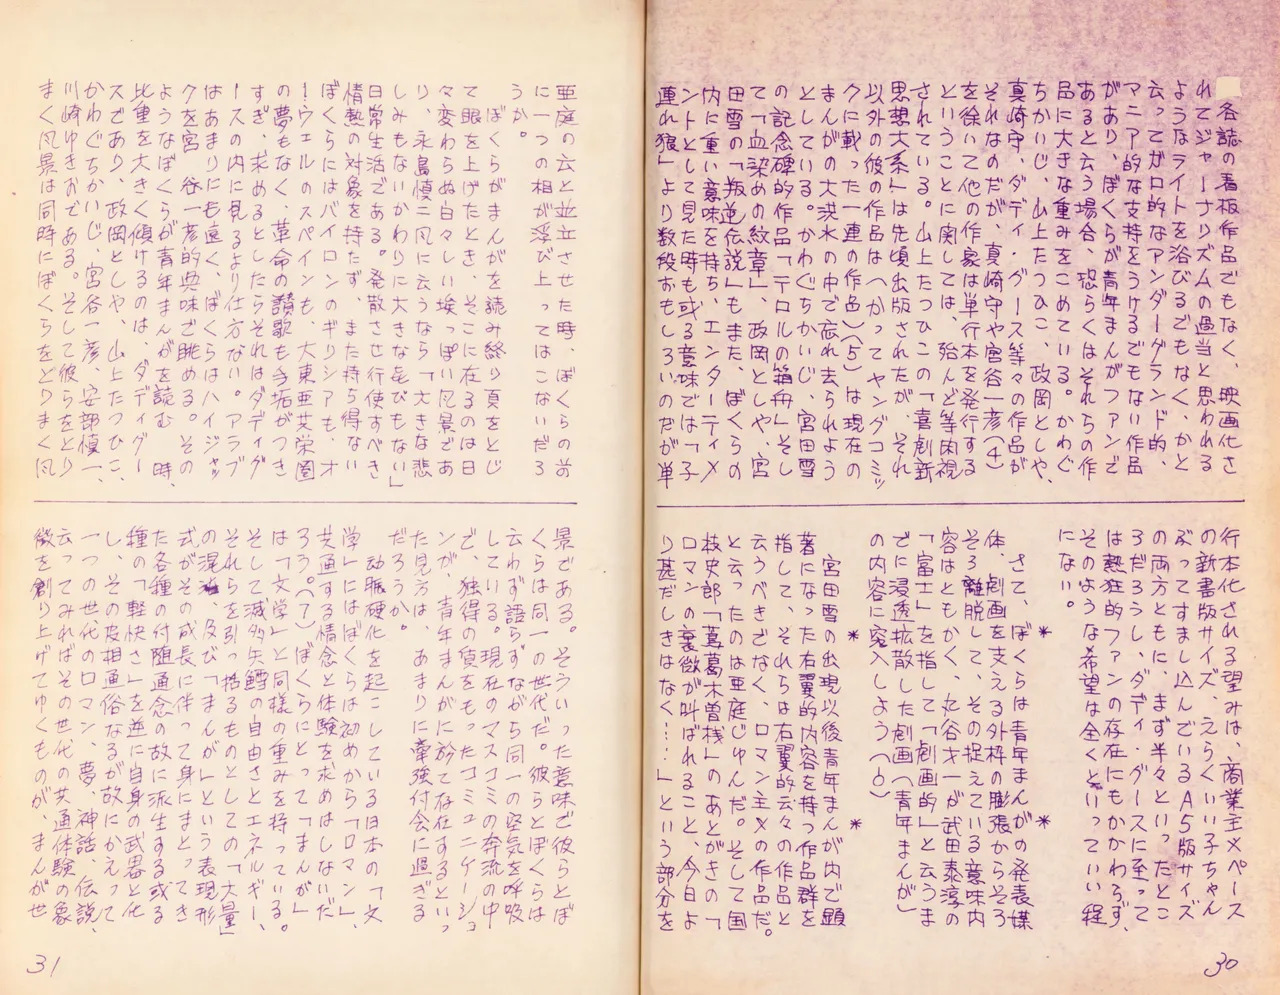 各誌の看板作品でもなく、映画化さ
れてジャーナリズムの過当と思われる
ようなライトを浴びるでもなく、かと
云ってガロ的なアンダーグランド的、
マニア的な支持をうけるでもない作品
があり、ぼくらが青年まんがファンで
あると云う場合、恐らくはそれらの作
品に大きな重みをこめている。かわぐ
ちかいじ、山上たつひこ、政岡としや、
真崎守、ダディ・グース等々の作品が
それなのだが、真崎守や宮谷一彦(4)
を徐いて他の作家は単行本を発行する
ということに関しては、殆んど等閑視
されている。山上たつひこの「喜劇新
思想大系」は先頃出版されたが、それ
以外の彼の作品はへかってヤングコミッ
クに載った一連の作品)(5)は現在の
まんがの大洪水の中で忘れ去られよう
としている。かわぐちかいじ、宮田雪
の記念碑的作品「テロルの箱舟」そし
て「血染めの紋章」、政岡としや、宮
田雪の「叛逆伝説」もまた、ぼくらの
内に重い意味を持ち、エンターティメ
ントとして見た時も或る意味では「子
連れ狼」より数段おもしろいのだが単
行本化される望みは、商業主メベース
の新書版サイズ、えらくいい子ちゃん
ぶってすまし込んでいるA5版サイズ
の両方ともに、まず半々といったとこ
ろだろうし、ダディ・グースに至って
は熱狂的ファンの存在にもかかわらず、
そのような希望は全くといっていい程
にない。
* *
さて、ぼくらは青年まんがの発表媒
体、劇画を支える外枠の膨張からそろ
そろ離脱して、その捉えている意味内
容はともかく、丸谷才一が武田泰淳の
「富士」を指して「劇画的」と云うま
でに浸透拡散した劇画(青年まんが)
の内容に容入しよう(6)
* *
宮田雪の出現以後青年まんが内で顕
著になった右翼的内容を持つ作品群を
指して、それらは右翼的云々の作品と
云うべきでなく、ロマン主メの作品だ。
と云ったのは亜庭じゅんだ。そして国
枝史郎「蔦葛木曽桟」のあとがきの「
ロマンの衰微が叫ばれること、今日よ
り甚だしきはなく……」という部分を
30
亜庭の云と並立させた時、ぼくらの前
に一つの相が浮び上ってはこないだろ
うか。
ぼくらがまんがを読み終り頁をとじ
て眼を上げたとき、そこに在るのは日
々変わらぬ白々しい埃っぽい風景であ
り、永島慎二風に云うなら「大きな悲
しみもないかわりに大きな㐂びもない」
日常生活である。発散させ行使すべき
情熱の対象を持たず、また持ち得ない
ぼくらにはバイロンのギリシアも、オ
ーウェルのスペインも、大東亜共栄圏
の夢もなく、革命の讃歌も手垢がつき
すぎ、求めるとしたらそれはダディグ
ースの内に見るより仕方ない。アラブ
はあまりにも遠く、ぼくらはハイジャッ
クを宮谷一彦的興味で眺める。その
ようなぼくらが青年まんがを読む時、
比重を大きく傾けるのは、ダディグー
スであり、政岡としや、山上たつひこ、
かわぐちかいじ、宮谷一彦、安部慎一、
川崎ゆきおである。そして彼らをとり
まく風景は同時にぼくらをとりまく風
景である。そういった意味で彼らとぼ
くらは同一の世代だ。彼らとぼくらは
云わず語らずながら同一の空気を呼吸
している。現在のマスコミの奔流の中
で、独得の値をもったコミュニケーショ
ンが、青年まんがに於て存在するといっ
た見方は、あまりに牽強付会に過ぎる
だろうか。
動脈硬化を起こしている日本の「文
学」にはぼくらは初めから「ロマン」、
共通する情念と体験を求めはしないだ
ろう。(7)ぼくらにとって「まんが」
は「文学」と同様の重みを持っている。
そして滅多矢鱈の自由さとエネルギー、
それらを引っ括るものとしての「大量」
の混血、及び「まんが」という表現形
式がその成長に伴って身にまとってき
た各種の付随通念の故に派生する或る
種の「軽快さ」を逆に自身の武器と化
し、その皮相通俗なるが故にかえって
一つの世代のロマン、夢、神話、伝説、
云ってみればその世代の共通体験の象
徴を創り上げてゆくものが、まんが世
31